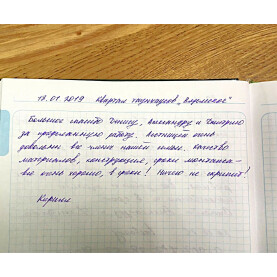 17.01.2019 Квартал таунхаусов „Барвиха“
Большое спасибо Денису, Александру и Дмитрию
за проделанную работу. Лестницей очень
довольны все члены нашей семьи. Качество
материалов, конструкция, сроки монтажа –
все очень хорошо, в сроки! Ничего не скрипит!
Кирилл